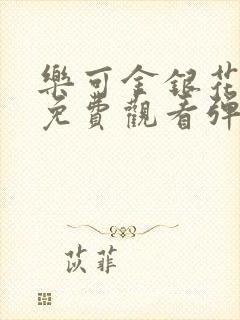 樂可金銀花
免費觀看彈
苡菲